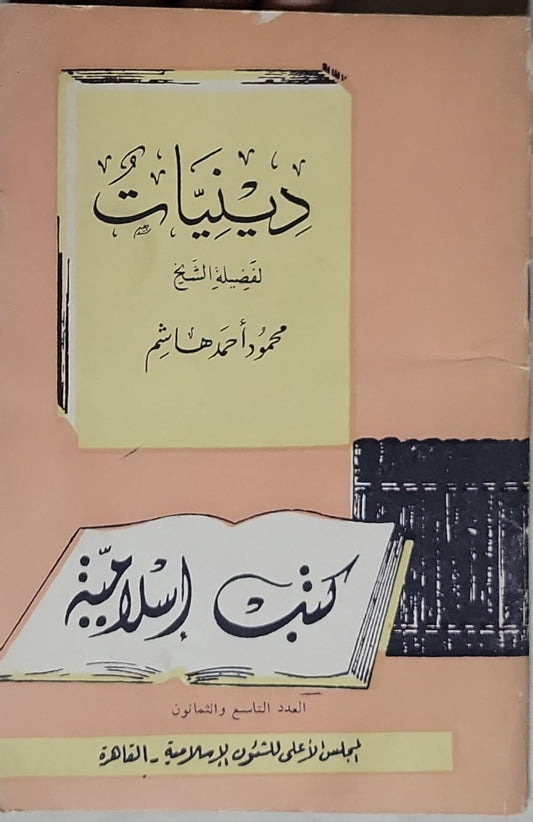 دِينِيَّاتٌ
لفَضِيلةِ الشَّيخ
محمُود أحمَد هَاشِم
كتب إسلاميّة
العدد التاسع والثمانون
المجلس الأعلى للشئون الإسلامية - القاهرة